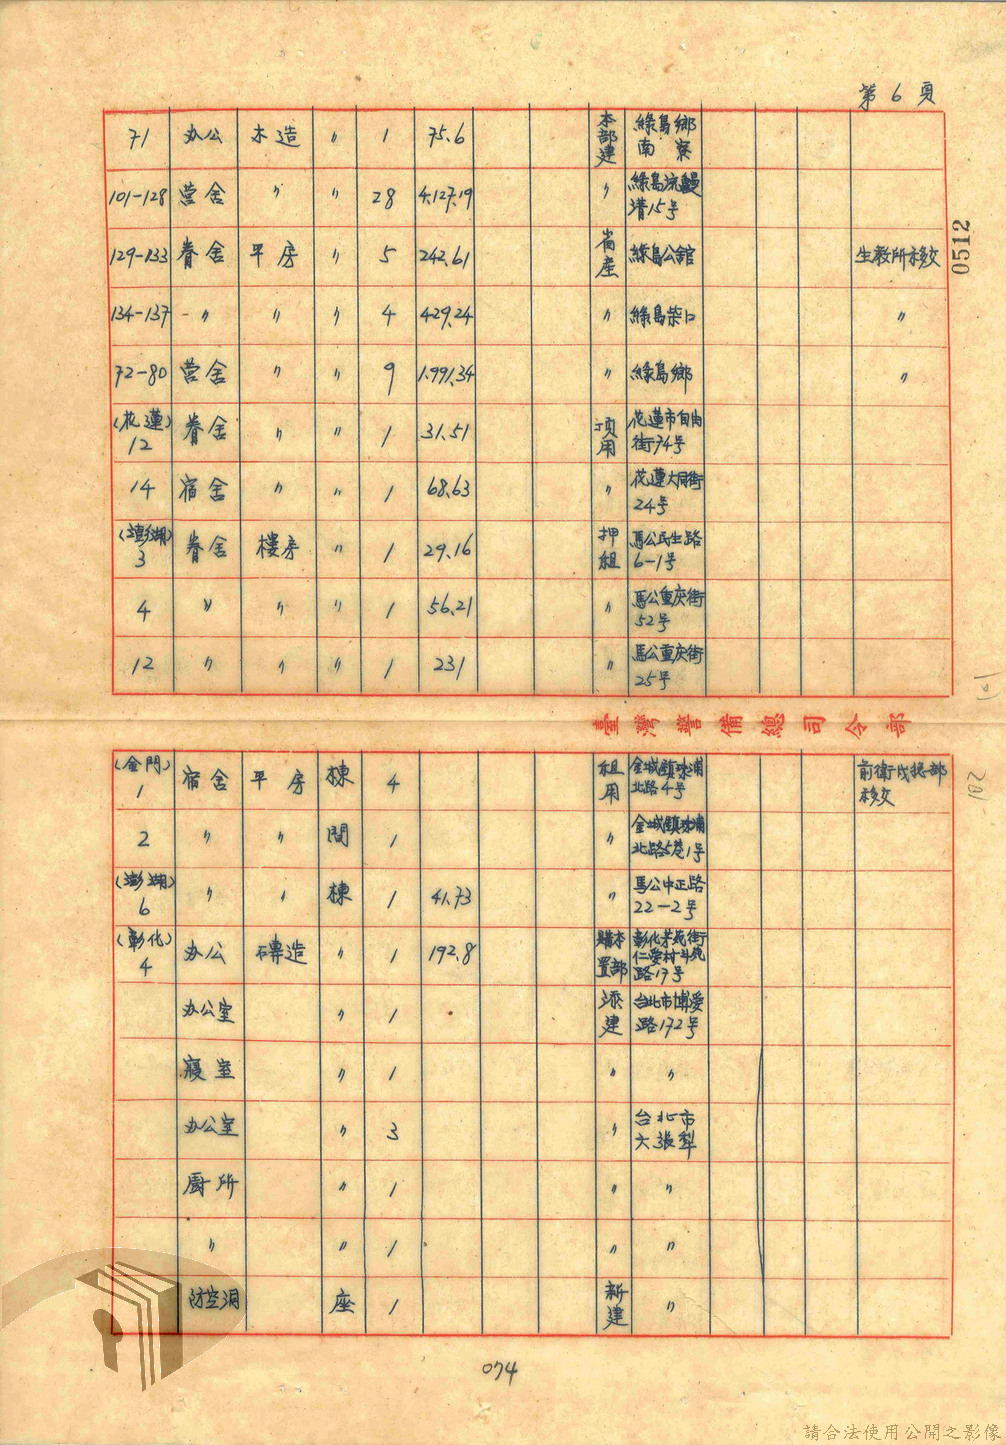 第 6 頁
71 办公 木造 〃 1 75.6 本部建 綠島鄉南寮
101-128 营舍 〃 〃 28 4,127.19 〃 綠島流鰻溝15号
129-133 眷舍 平房 〃 5 242.61 省產 綠島公舘 生教所移交
134-137 〃 〃 〃 4 429.24 〃 綠島柴口 〃
72-80 营舍 〃 〃 9 1,991.34 〃 綠島鄉 〃
(花蓮)12 眷舍 〃 〃 1 31.51 頂用 花蓮市自由街74号
14 宿舍 〃 〃 1 68.63 〃 花蓮大同街24号
(澎湖)3 眷舍 樓房 〃 1 29.16 押租 馬公民生路6-1号
4 〃 〃 〃 1 56.21 〃 馬公重庆街52号
12 〃 〃 〃 1 231 〃 馬公重庆街25号
臺灣警備總司令部
(金門)1 宿舍 平房 棟 4 租用 金城鎮珠浦北路4号 前衛戍總部移交
2 〃 〃 間 1 〃 金城鎮珠浦北路5巷1号
(澎湖)6 〃 〃 棟 1 41.73 〃 馬公中正路22-2号
(彰化)4 办公 磚造 〃 1 192.8 本部購置 彰化 街仁愛村斗苑路17号
办公室 〃 1 添建 台北市博愛路172号
寢室 〃 1 〃 〃
办公室 〃 3 〃 台北市六張犁
厨所 〃 1 〃 〃
〃 〃 1 〃 〃
防空洞 座 1 新建 〃
0512
074
請合法使用公開之影像